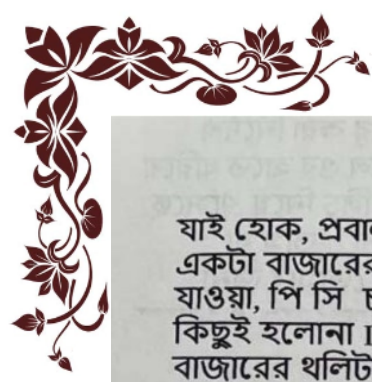 যাই হোক, প্রবা
একটা বাজারের
যাওয়া, পি সি
কিছুই হলোনা
বাজারের থলিট